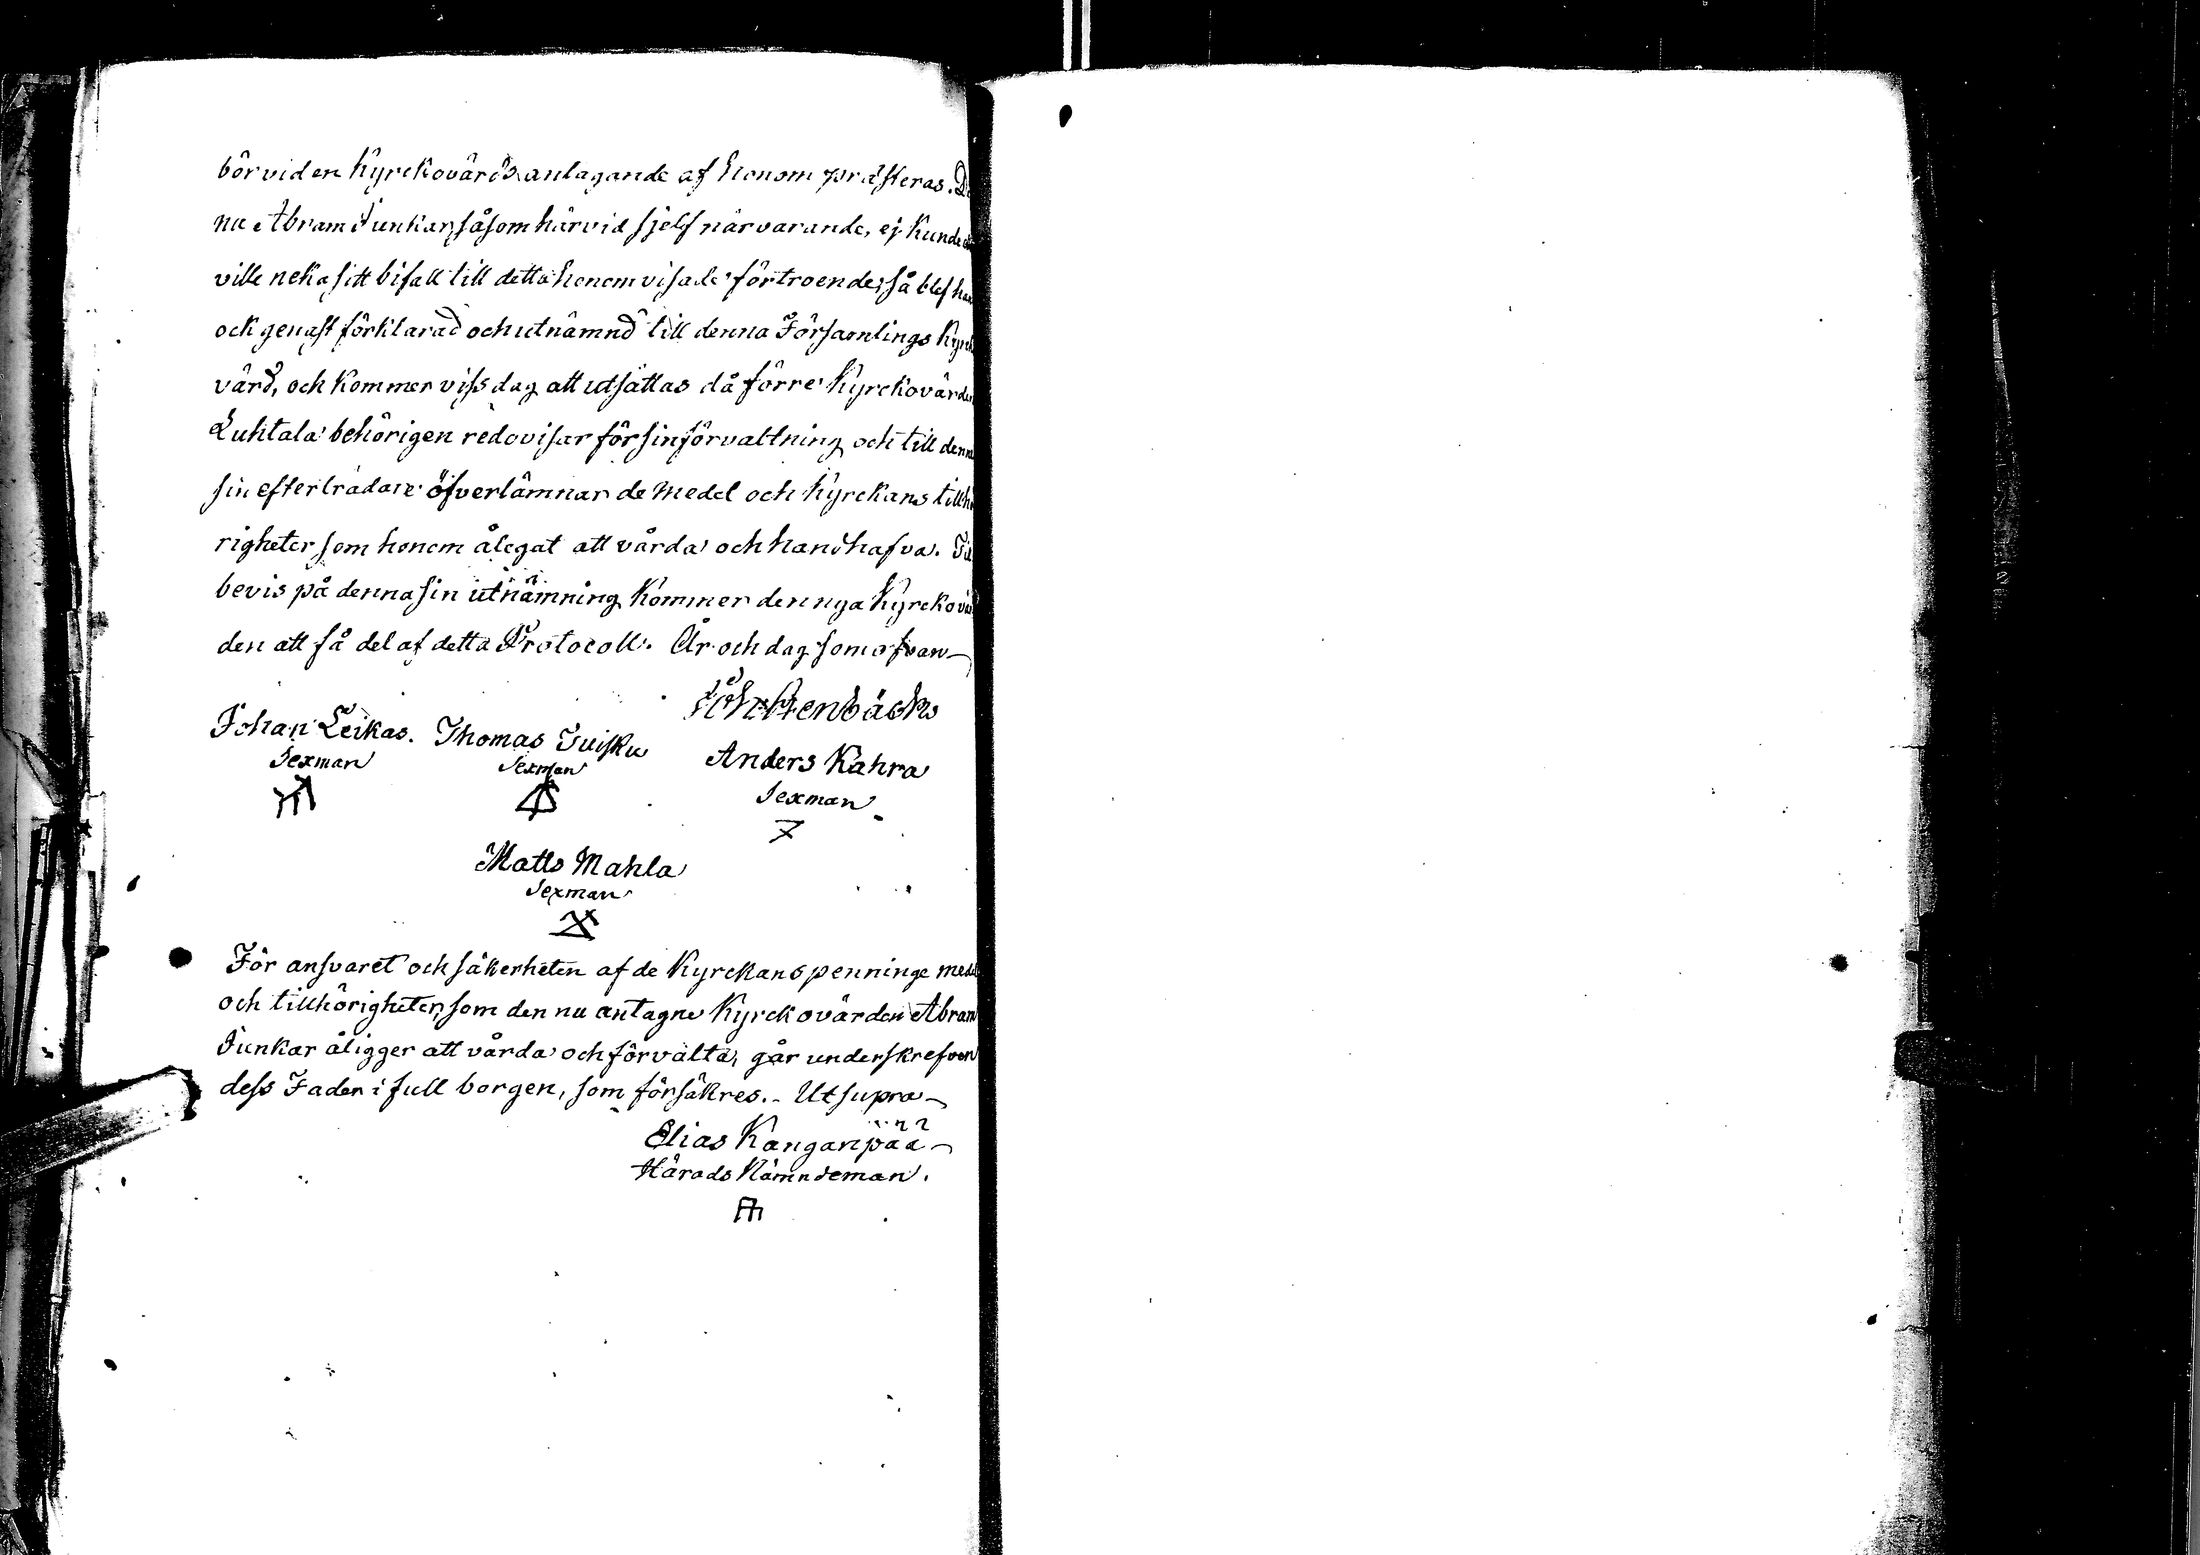 bör vid en Kyrckovärds antagande af honom præsteras. Då
nu Abram Junkar, såsom härvid sjelf närvarande, ej kunde
ville neka sitt bifall till detta honom visade förtroende; så blef han
ock genast förklarad och utnämnd till denna Församlings Kyrck
värd, och kommer viss dag att utsättas då förre Kyrckovärden
Luhtala behörigen redovisar för sin förvaltning och till denna
sin efterträdare öfverlämnar de medel och Kyrckans tillhö
righeter som honom ålegat att vårda och handhafva. Til
bevis på denna sin utnämning kommer den nya Kyrckovär
den att få del af detta Protocoll. År och dag som ofvan
Johan Leikas. Thomas Tuisku
Sexman Sexman
Anders Kahra
Sexman
Matts Mahla
Sexman
För ansvaret och säkerheten af de Kyrckans penninge medel
och tillhörigheter, som den nu antagne Kyrckovärden Abram
Junkar åligger att vårda och förvalta, går underskrefven
dess Fader i full borgen, som försäkres. Ut supra
Elias Kanganpää
Härads Nämndeman.